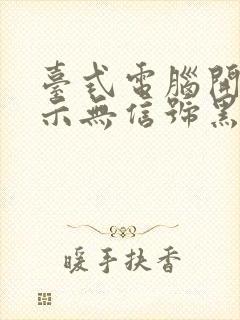 臺式電腦開
示無信號黑
暖手扶香